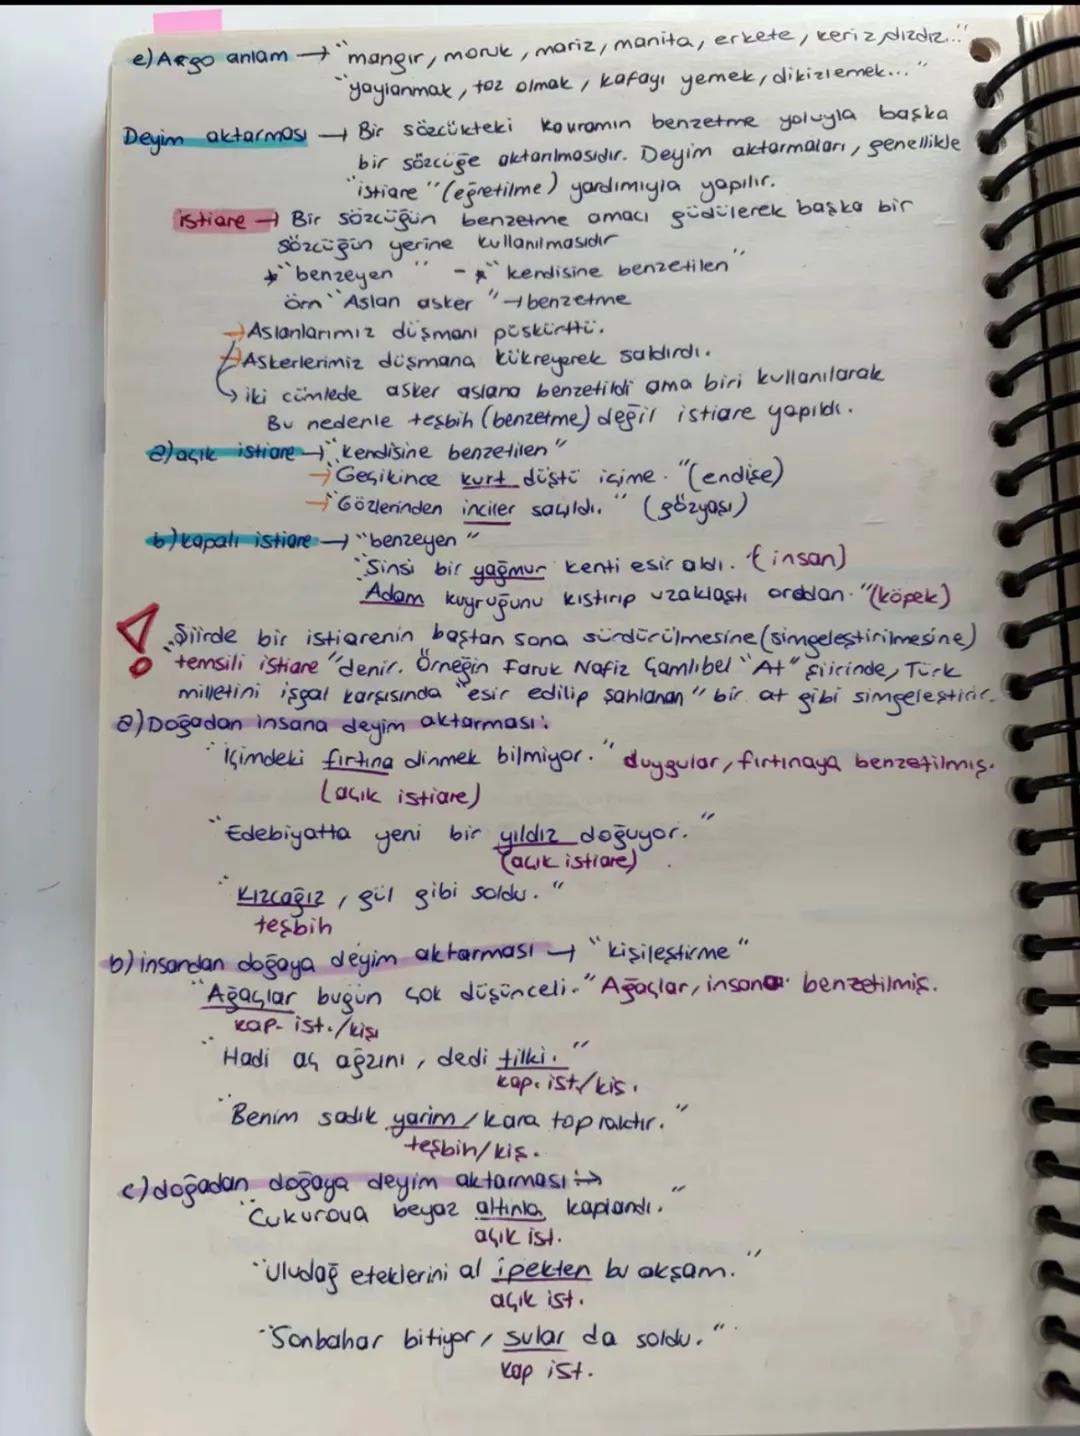 e) Argo anlam → "mangır, moruk, mariz, manita, erkete, keriz, dızdız..."
"yaylanmak, toz olmak, kafayı yemek, dikizlemek..."
Deyim aktarması → Bir sözcükteki kavramın benzetme yoluyla başka
bir sözcüğe aktarılmasıdır. Deyim aktarmaları, genellikle
"istiare" (eğretilme) yardımıyla yapılır.
istiare → Bir sözcüğün benzetme amacı güdülerek başka bir
sözcüğün yerine kullanılmasıdır
* "benzeyen" - * "kendisine benzetilen"
örn "Aslan asker" → benzetme
→ Aslanlarımız düşmanı püskürttü.
→ Askerlerimiz düşmana kükreyerek saldırdı.
→ iki cümlede asker aslana benzetildi ama biri kullanılarak
Bu nedenle teşbih (benzetme) değil istiare yapıldı.
a) açık istiare → "kendisine benzetilen"
→ "Gecikince kurt düştü içime." (endişe)
→ "Gözlerinden inciler saçıldı." (gözyaşı)
b) kapalı istiare → "benzeyen"
"Sinsi bir yağmur kenti esir aldı. (insan)
"Adam kuyruğunu kıstırıp uzaklaştı oradan." (köpek)
! Şiirde bir istiarenin baştan sona sürdürülmesine (simgeleştirilmesine)
"temsili istiare" denir. Örneğin Faruk Nafiz Çamlıbel "At" şiirinde, Türk
milletini işgal karşısında "esir edilip şahlanan" bir at gibi simgeleştirir.
a) Doğadan insana deyim aktarması:
"İçimdeki fırtına dinmek bilmiyor." duygular, fırtınaya benzetilmiş.
(açık istiare)
"Edebiyatta yeni bir yıldız doğuyor."
(açık istiare)
"Kızcağız, gül gibi soldu."
teşbih
b) insandan doğaya deyim aktarması → "kişileştirme"
"Ağaçlar bugün çok düşünceli." Ağaçlar, insana benzetilmiş.
kap. ist./kişi
"Hadi aç ağzını, dedi tilki."
kap. ist./kiş.
"Benim sadık yarim / kara topraktır."
teşbih/kiş.
c) doğadan doğaya deyim aktarması:→
"Çukurova beyaz altınla kaplandı."
açık ist.
"Uludağ eteklerini al ipekten bu akşam."
açık ist.
"Sonbahar bitiyor, sular da soldu."
kap ist.